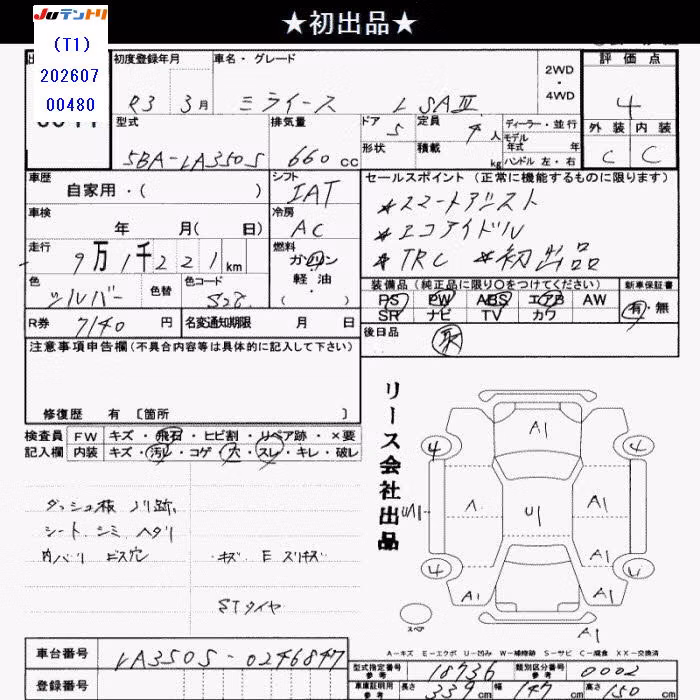 ★初出品★
JUテントリ
(T1)
202607
00480
初度登録年月 車名・グレード 2WD・4WD 評価点
R3 3月 ミライース L SAⅢ 4
型式 排気量 ドア 定員 ディーラー・並行 外装 内装
5BA-LA350S 660cc 5 4人 モデル年式 年式 C C
形状 積載 kg ハンドル 左・右
車歴 シフト セールスポイント(正常に機能するものに限ります)
自家用・( ) IAT ★スマートアシスト
車検 冷房 ★エコアイドル
年 月( 日) AC ★TRC ★初出品
走行 燃料
9万1千221km ガソリン
軽油・
( )
色 色替 色コード 装備品(純正品に限り○をつけてください) 新車保証書
シルバー S28 PS PW ABS エアB AW 有・無
SR ナビ TV カワ
R券 7140円 名変通知期限 月 日 後日品 取
注意事項申告欄(不具合内容等は具体的に記入して下さい)
修復歴 有 [箇所 ]
検査員 FW キズ・飛石・ヒビ割・リペア跡・×要
記入欄 内装 キズ・汚レ・コゲ・穴・スレ・キレ・破レ
リース会社出品
ダッシュ板 ノリ跡
シート シミ ヘタリ
内バリ ビス穴 キズ E スリキズ
STタイヤ
A1
4 4
UA1 A U1 A1
A1
4 4
A1 A1 U
スペア
A-キズ E-エクボ U-凹み W-補修跡 S-サビ C-腐食 XX-交換済
車台番号 LA350S-0246847
登録番号
型式指定番号 参考 18736 類別区分番号 参考 0002
車庫証明用 参考 長さ 339cm 幅 147cm 高さ 150cm